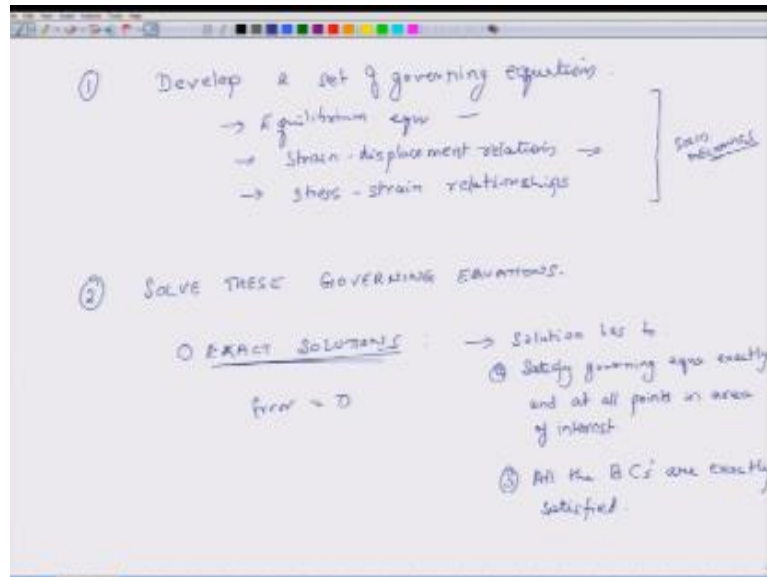 ① Develop a set of governing equations.
→ Equilibrium eqns —
→ Strain-displacement relations →
→ Stress-strain relationships
SOLID MECHANICS
② SOLVE THESE GOVERNING EQUATIONS.
○ EXACT SOLUTIONS : → Solution has to
ⓐ Satisfy governing eqns exactly
and at all points in area
of interest
Error = 0
ⓑ All the BCs are exactly
satisfied.